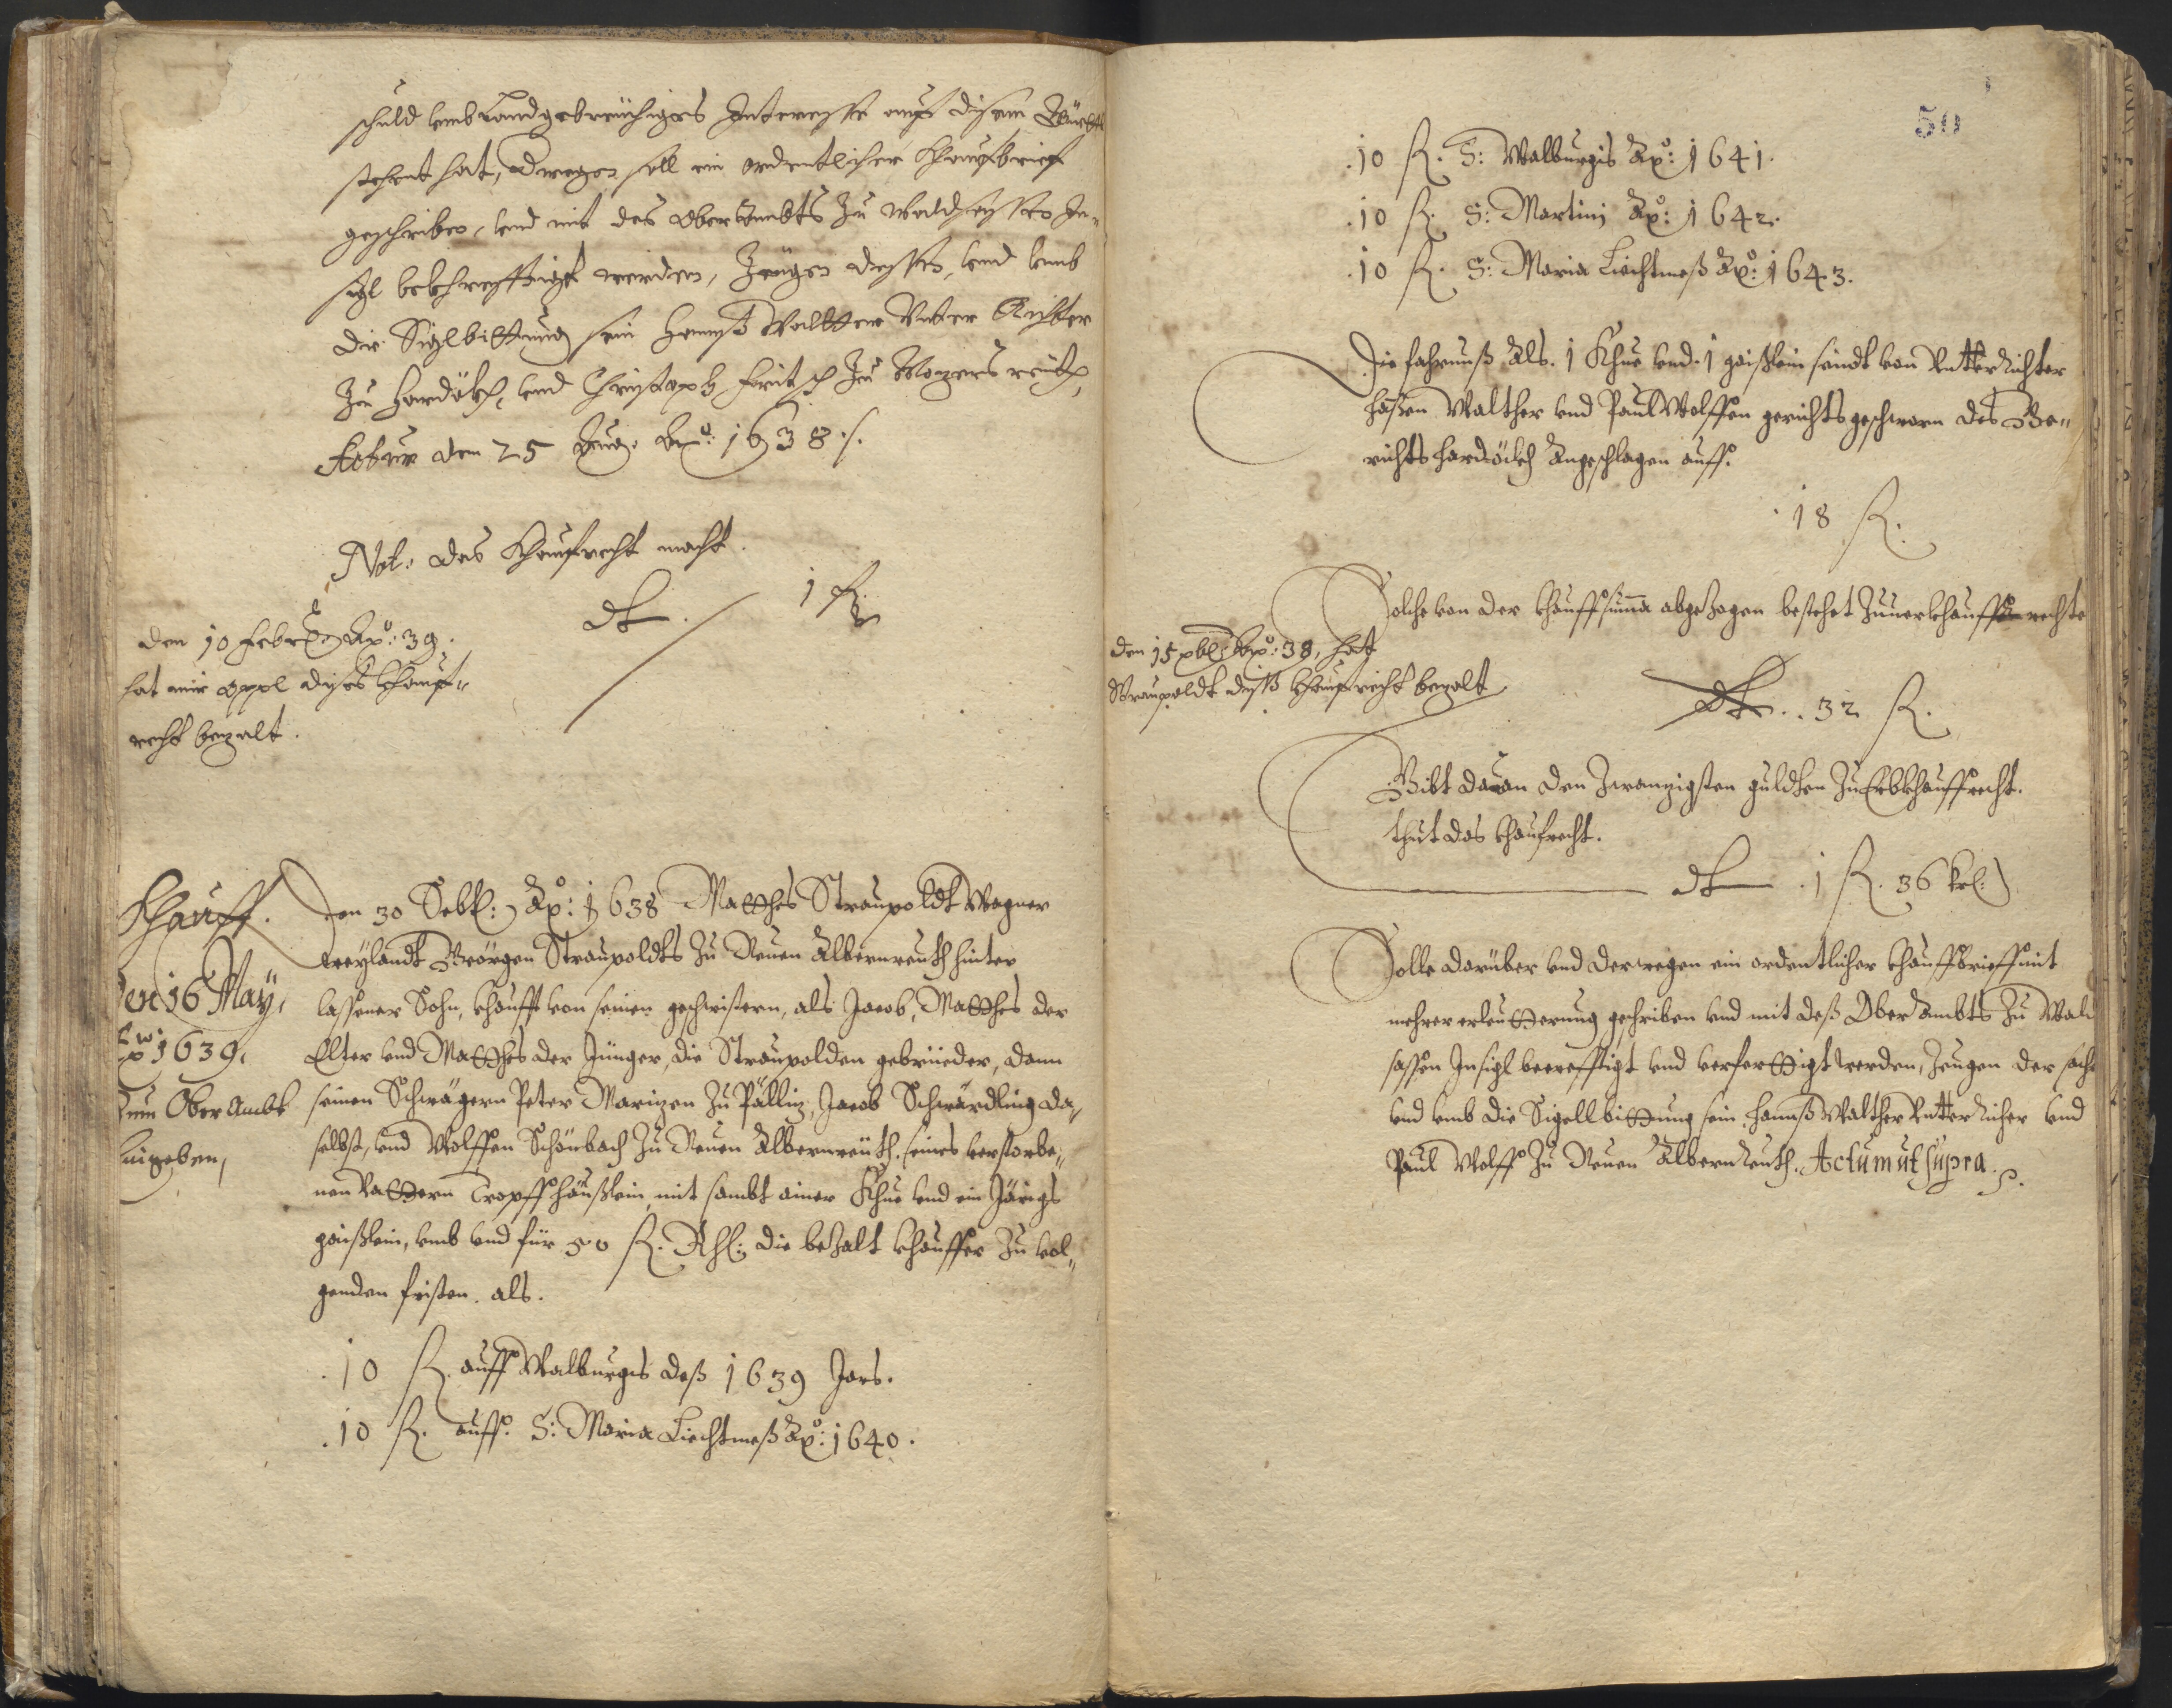 schuld vmb Landgebreuchiges Interesse auf disem
stehent hat, derwegen soll ein ordentlicher Khaufbrief
geschriben, vnd mit des OberAmbts zu Waldsassen In-
sigl bekhrefftigt werden, Zeugen dessen, vnd vmb
die Siglbittung sein Hannß Walther Vnter Richter
zu Hardökh, vnd Christoph Fritsch zu Mayersreuth,
Actum den 25 Aug. Ao: 1638 ./.
Not: das Khaufrecht macht.
dt. 1 fl.
den 10 Febr: Ao: 39.
hat mir Appl dises Khauf-
recht bezalt.
Khauff.
Den 16 May,
Ao 1639.
Zum Ober Ambt
eingeben,
Den 30 Sebt: Ao: 1638 Matthes Straupoldt Wagner
weylandt Geörgen Straupoldts zu Neuen Albernreuth hinter
lassener Sohn, khaufft von seinen geschwistern, als Jacob, Matthes der
Elter vnd Matthes der Jünger, die Straupolden gebrüeder, dann
seinen Schwägern Peter Marizen zu Pälliz, Jacob Schwärdling da-
selbst, vnd Wolffen Schönbach zu Neuen Albernreuth. seines verstorbe-
nen Vattern Tropffhäußlein, mit sambt ainer Khue vnd ein Järigs
gaißlein, vmb vnd für 50 fl. Rh: die bezalt khauffer zu vol-
genden fristen. als.
.10 fl. auff Walburgis deß 1639 Jars.
.10 fl. auff. S: Maria Liechtmeß Ao: 1640.
50
.10 fl. S: Walburgis Ao: 1641.
.10 fl. S: Martini Ao: 1642.
.10 fl. S: Maria Liechtmeß Ao: 1643.
Die fahrnuß als. 1 Khue vnd. 1 gaißlein seindt von Vntter Richter
Haßen Walther vnd Paul Wolffen gerichtsgeschworn des Ge-
richts Hardöckh angeschlagen auff.
.18 fl.
Solche von der khauffsumma abgezogen bestehet zuuerkhauffrechte
den 15 xbr: Ao: 38, hat
Straupoldt diß Khaufrecht bezalt
dt. . 32 fl.
Gibt dauan den zwanzigsten gulden zu Erbkhauffrecht.
thut das khaufrecht.
dt .1 fl. 36 kr:
Solle darüber vnd derwegen ein ordentlicher khauffbrieff mit
mehrer erleutterung gechriben vnd mit deß Ober Ambts zu Wald
sassen Insigl becrefftigt vnd verferttigt werden, Zeugen der sach
vnd vmb die Sigellbittung sein. Hannß Walther Vntter Richer vnd
Paul Wolff zu Neuen Albern Reuth. Actum ut supra.